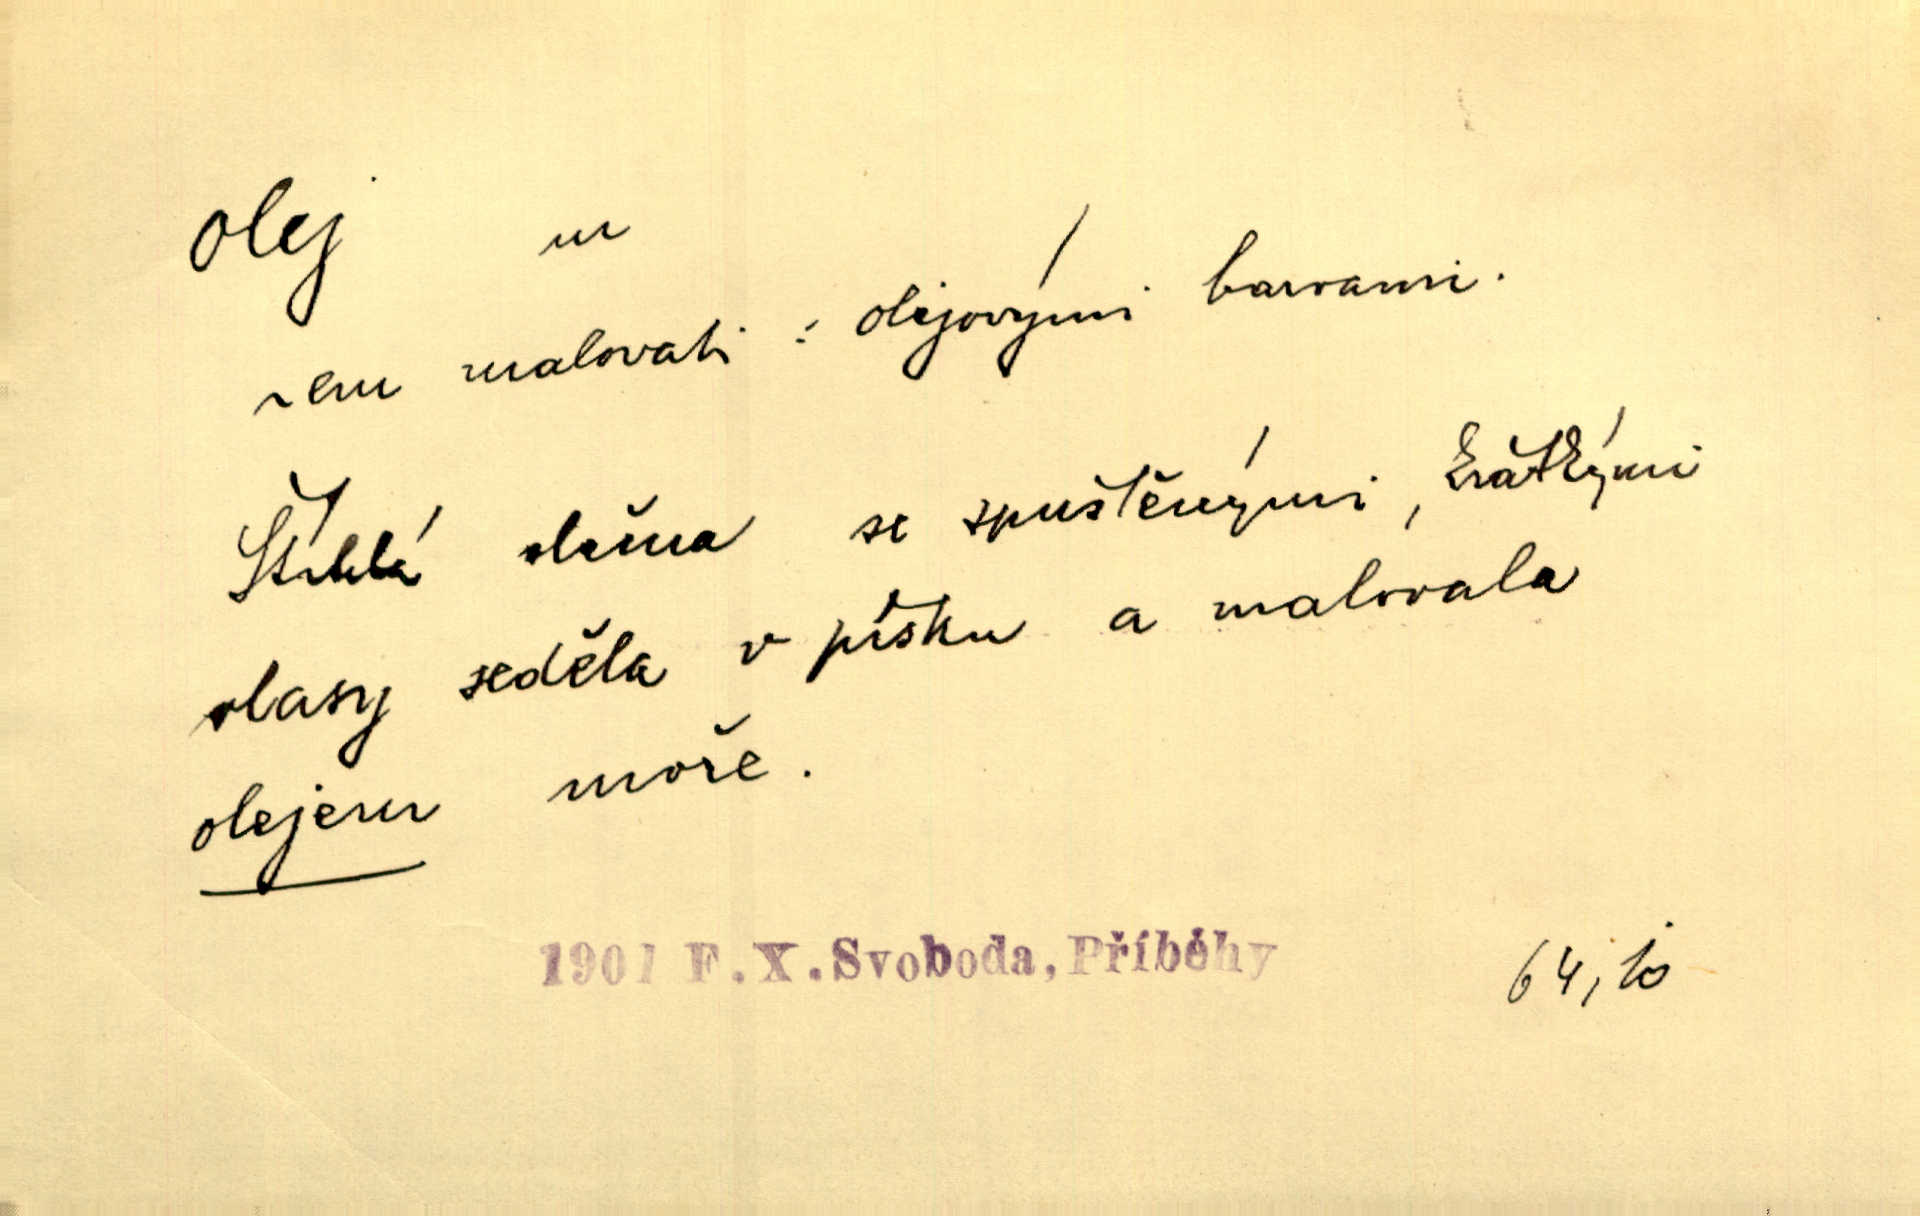 olej m
~em malovati : olejovými barvami.
Štíhlá slečna se spuštěnými, krátkými
vlasy seděla v písku a malovala
olejem moře.
1901 F.X.Svoboda, Příběhy 64,